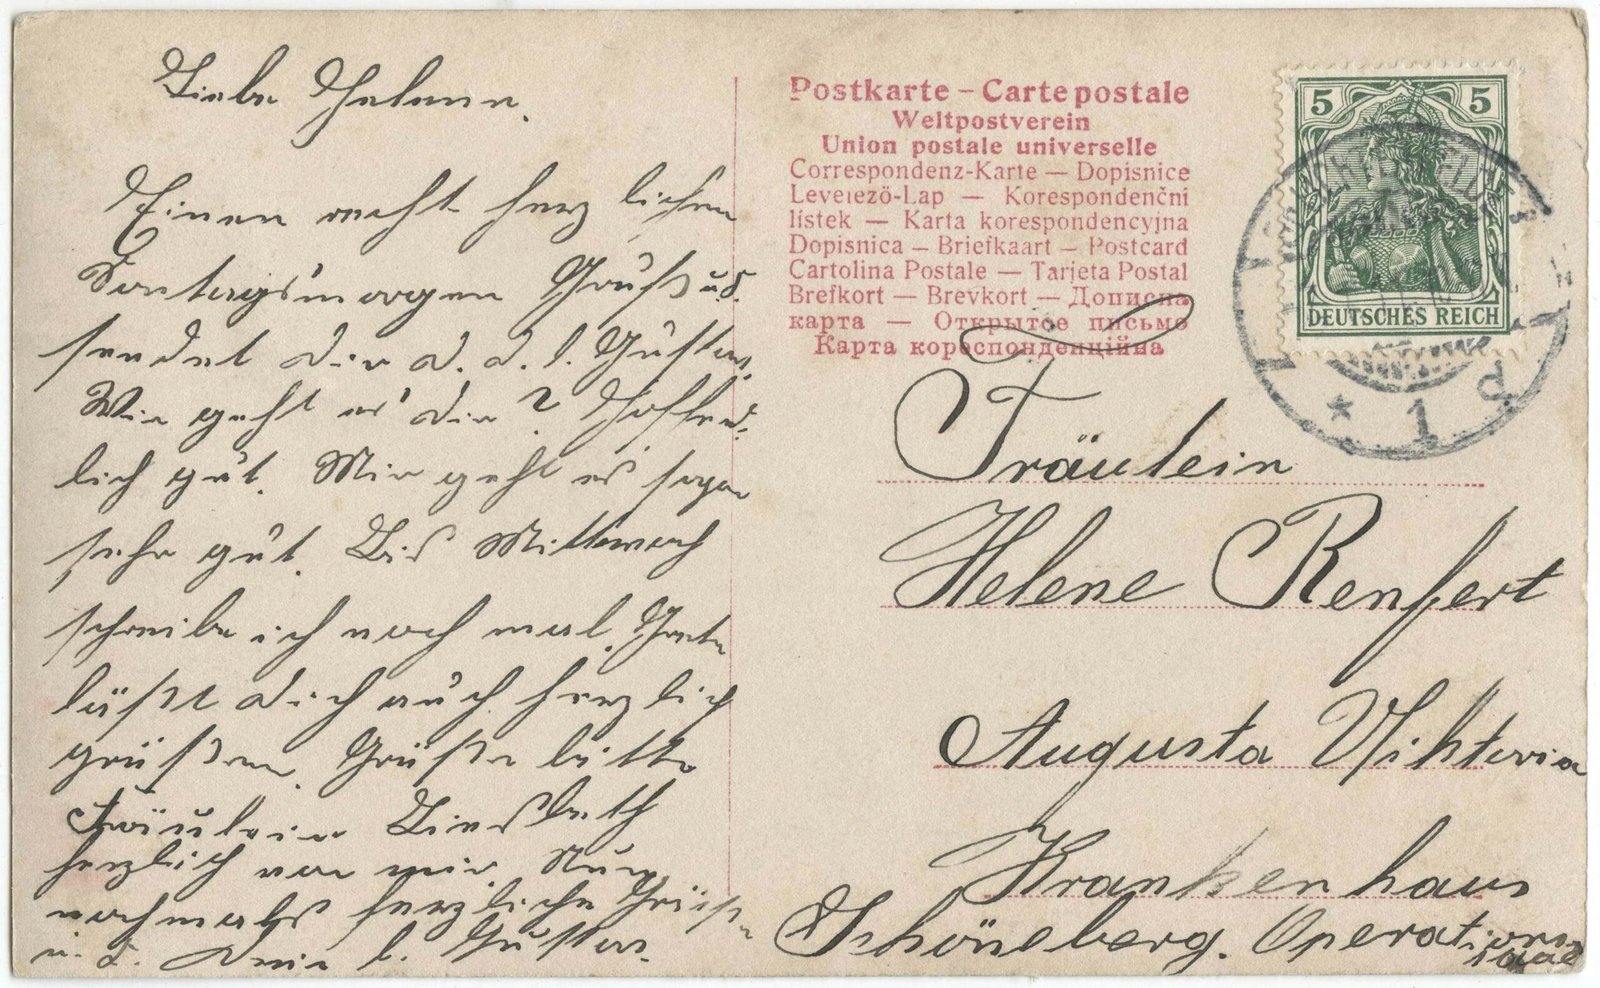 Liebe Helene.
Einen recht herzlichen
Sontagsmorgen Gruß u.
sendet dir d. d. l. Gustav.
Wie geht es dir? Hoffend-
lich gut. Mir geht es sogar
sehr gut. Bis Mittwoch
schreibe ich noch mal. Grete
läßt dich auch herzlich
grüßen. Grüße bitte
Fräulein Liesbeth
herzlich von mir. Nun
nochmals herzliche Grüße
Dein l. Gustav.
Postkarte – Carte postale
Weltpostverein
Union postale universelle
Correspondenz-Karte — Dopisnice
Levelező-Lap — Korespondenčni
lístek — Karta korespondencyjna
Dopisnica — Briefkaart — Postcard
Cartolina Postale — Tarjeta Postal
Brefkort — Brevkort — Дописна
карта — Открытое письмо
Карта кореспонденційна
5 5
DEUTSCHES REICH
* 1 d
Fräulein
Helene Renfert
Augusta Viktoria
Krankenhaus
Schöneberg. Operations
saal